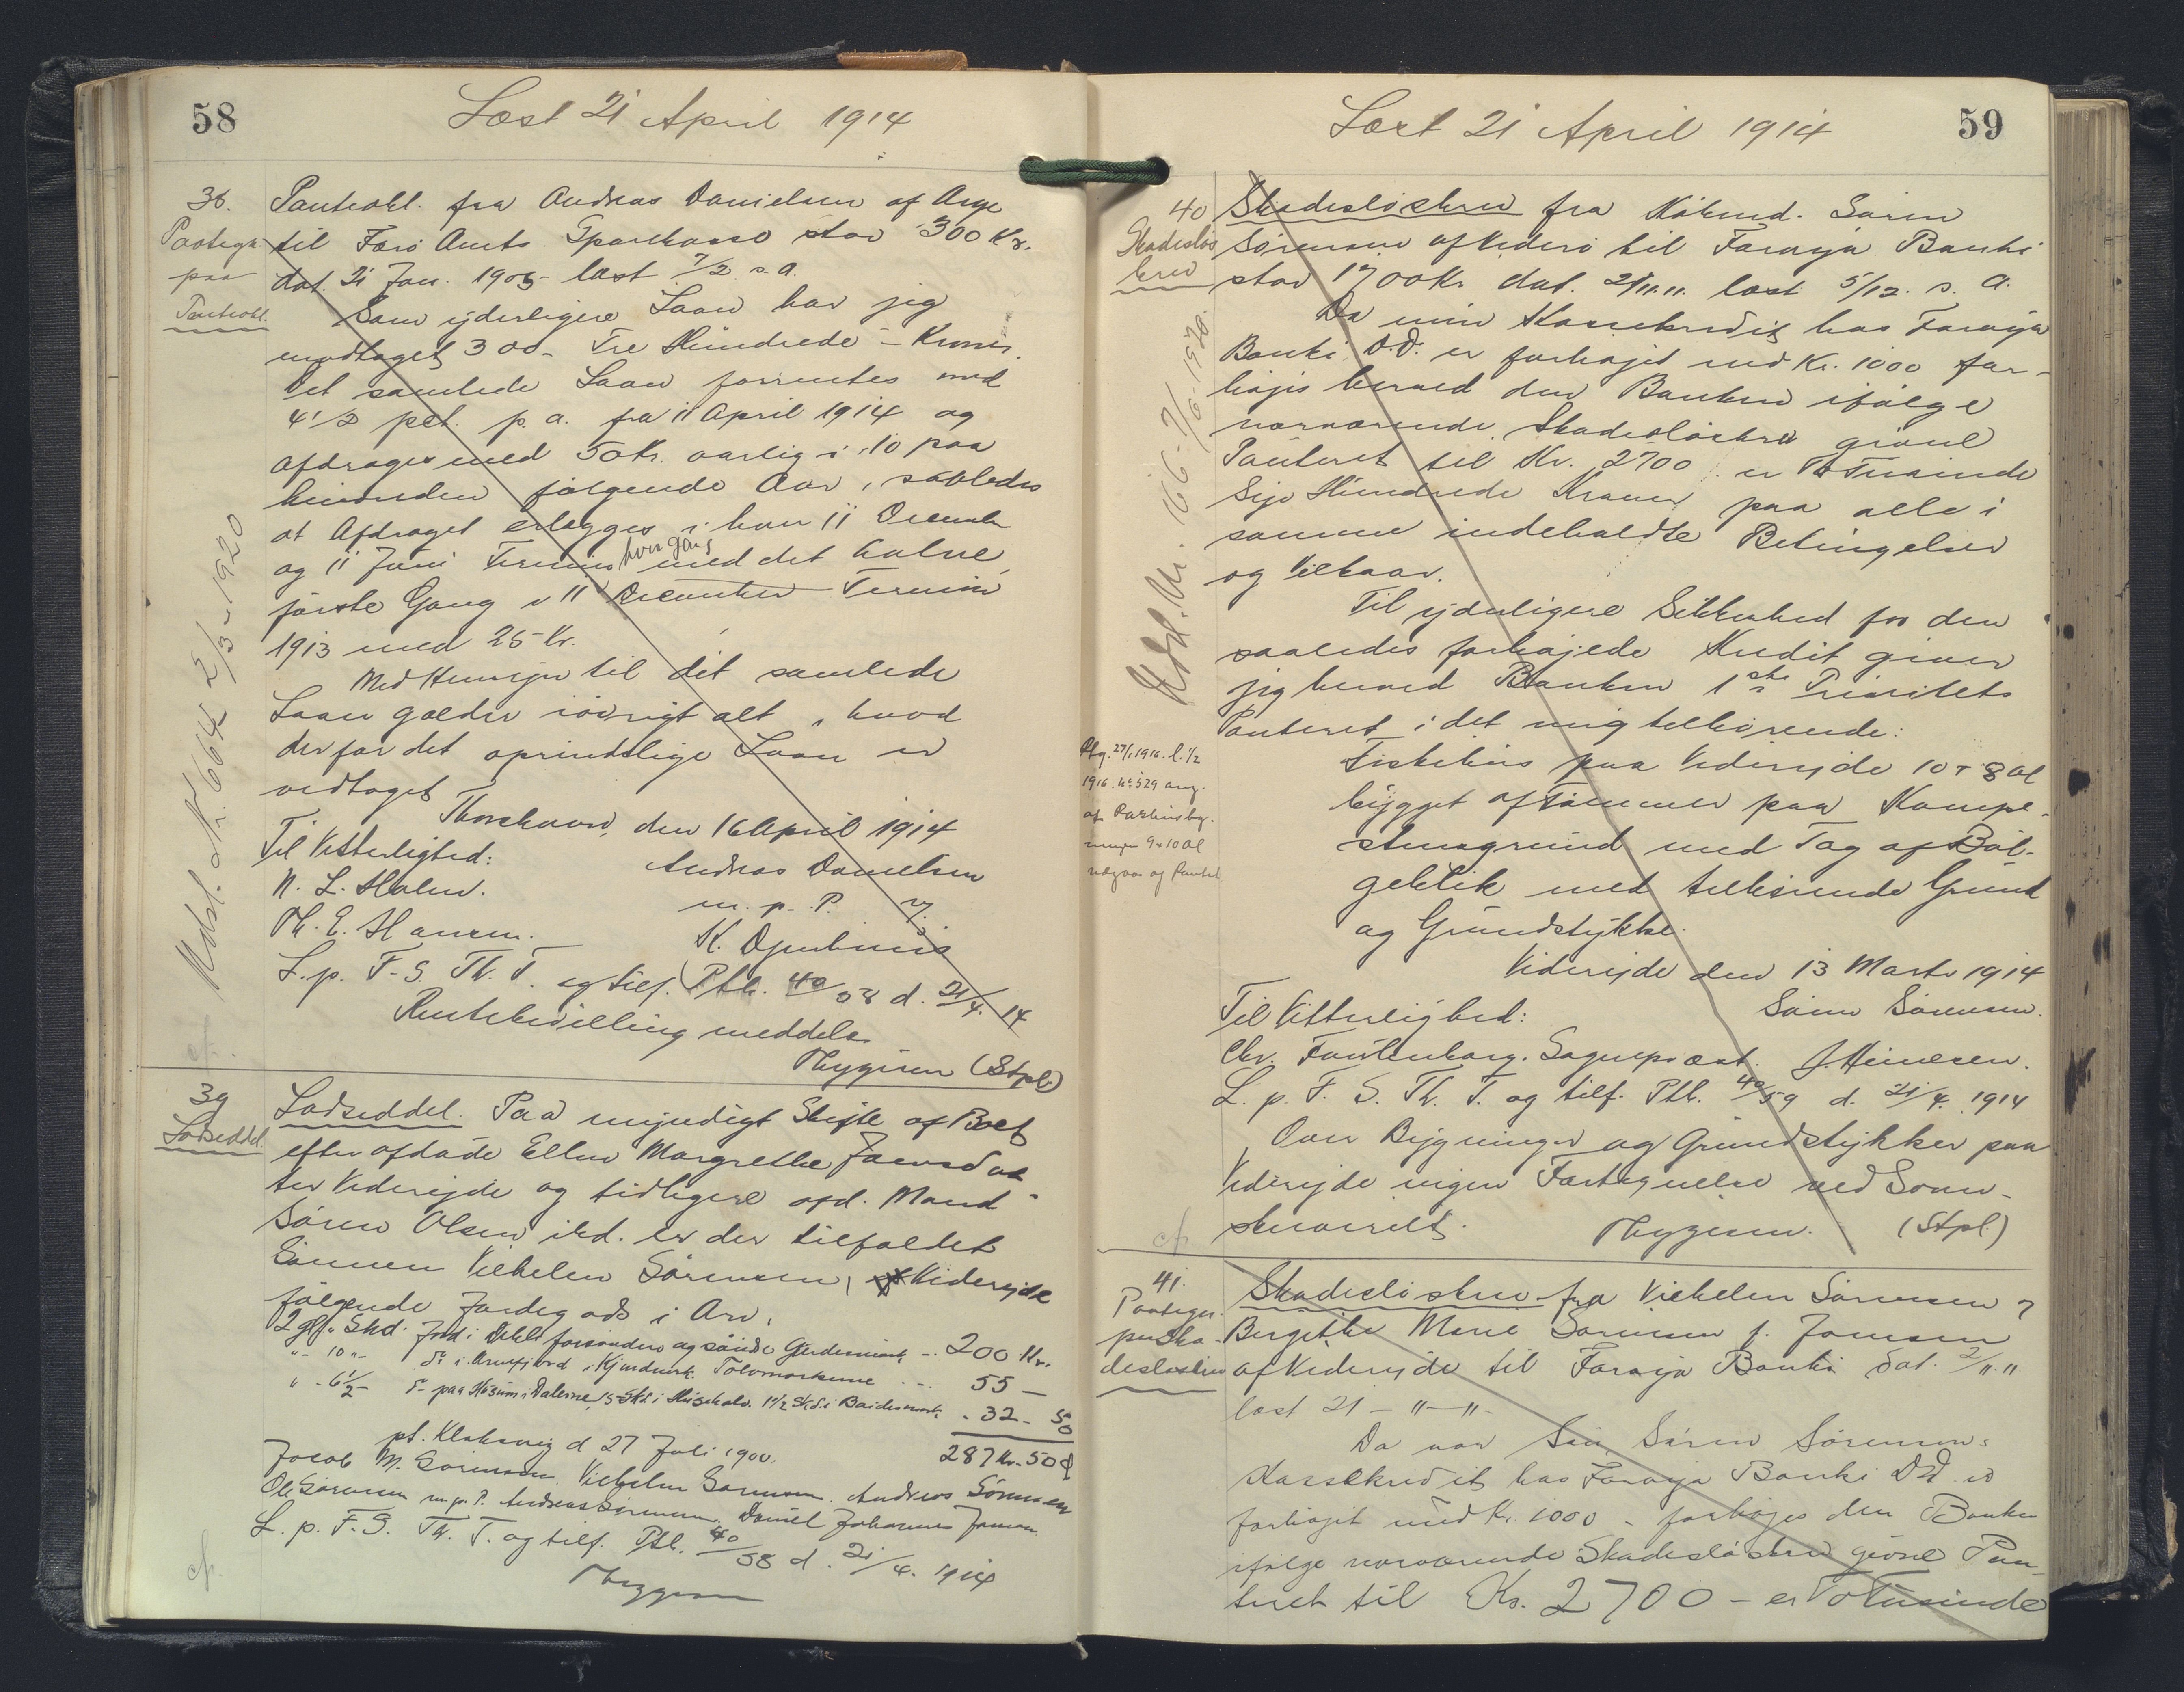 58
Læst 21 April 1914
38.
Paategn.
paa
Panteobl.
Panteobl. fra Andreas Danielsen af Arge
til Færø Amts Sparekasse stor 300 Kr.
dat. 21 Jan. 1905 læst 7/2 s. a.
Som yderligere Laan har jeg
modtaget 300 - Tre Hundrede - Kroner.
Det samlede Laan forrentes med
4 1/2 pct. p. a. fra 11 April 1914 og
afdrages med 50 Kr. aarlig i 10 paa
hinanden følgende Aar, saaledes
at Afdraget erlægges i hver 11 December
og 11 Juni Termin hver Gang med det halve,
første Gang i 11 December Termin
1913 med 25 Kr.
Med Hensyn til det samlede
Laan gælder iøvrigt alt, hvad
der for det oprindelige Laan er
vedtaget
Thorshavn, den 16 April 1914
Til Vitterlighed:
Andreas Danielsen
N. L. Holm.
m. p. P.
Th. E. Hansen.
K. Djurhuus
L. p. F. S. Th. T. og tilf. Ptb. 40/58 d. 21/4. 14
Rentebevilling meddeles
Thygesen (Stpl.)
Udsl. Nr. 664 2/3 - 1920
39
Lodseddel.
Lodseddel. Paa myndigt Skifte af Boet
efter afdøde Ellen Margrethe Joensdat-
ter Viderejde og tidligere afd. Mand
Søren Olsen ibd. er der tilfaldet
Sønnen Vilhelm Sørensen, af Viderejde
følgende Jordegods i Arv.
200 Kr.
55 —
32 - 50
287 Kr. 50 Ø
pt. Klaksvig d 27 Juli 1900.
Jacob M. Sørensen. Vilhelm Sørensen. Andreas Sørensen
Ole Sørensen m. p. P. Andreas Sørensen. Daniel Johannes Joensen
L. p. F. S. Th. T. og tilf. Ptb. 40/58 d. 21/4. 1914
Thygesen
cf.
59
Læst 21 April 1914
40
Skadesløs
brev
Skadesløsbrev fra Købmd. Søren
Sørensen af Viderø til Føroya Banki
stor 1700 Kr dat. 2/11.11. læst 5/12. s. a.
Da min Kassekredit hos Føroya
Banki D.D. er forhøjet med Kr. 1000 for-
højes herved den Banken ifølge
nærværende Skadesløsbrev givne
Panteret til Kr. 2700 er To Tusinde
Syv Hundrede Kroner paa alle i
samme indeholdte Betingelser
og Vilkaar.
Til yderligere Sikkerhed for den
saaledes forhøjede Kredit giver
jeg herved Banken 1ste Prioritets
Panteret i det mig tilhørende:
Fiskehus paa Viderejde 10 x 8 Al
bygget af Tømmer paa Kampe-
stensgrund med Tag af Bøl-
geblik med tilhørende Grund
og Grundstykke.
Viderejde den 13 Marts 1914
Til Vitterlighed:
Søren Sørensen.
Chr. Fastenborg. Sognepræst. J. Heinesen.
L. p. F. S. Th. T. og tilf. Ptb. 40/59 d. 21/4. 1914
Over Bygninger og Grundstykker paa
Viderejde ingen Fortegnelse ved Soren-
skriveriet.
Thygesen. (Stpl)
Udsl. Nr. 166 - 7/6 - 1920.
cf.
41.
Paategn.
paa Ska-
desløsbrev
Skadesløsbrev fra Vilhelm Sørensen &
Bergithe Marie Sørensen f. Joensen
af Viderejde til Føroya Banki dat. 2/11.11
læst 21 - 11 - 11 -
Da vor Søn Søren Sørensens
Kassekredit hos Føroya Banki DD er
forhøjet med Kr. 1000 - forhøjes den Banken
ifølge nærværende Skadesløsbrev givne Pan-
teret til Kr. 2700 - er To Tusinde